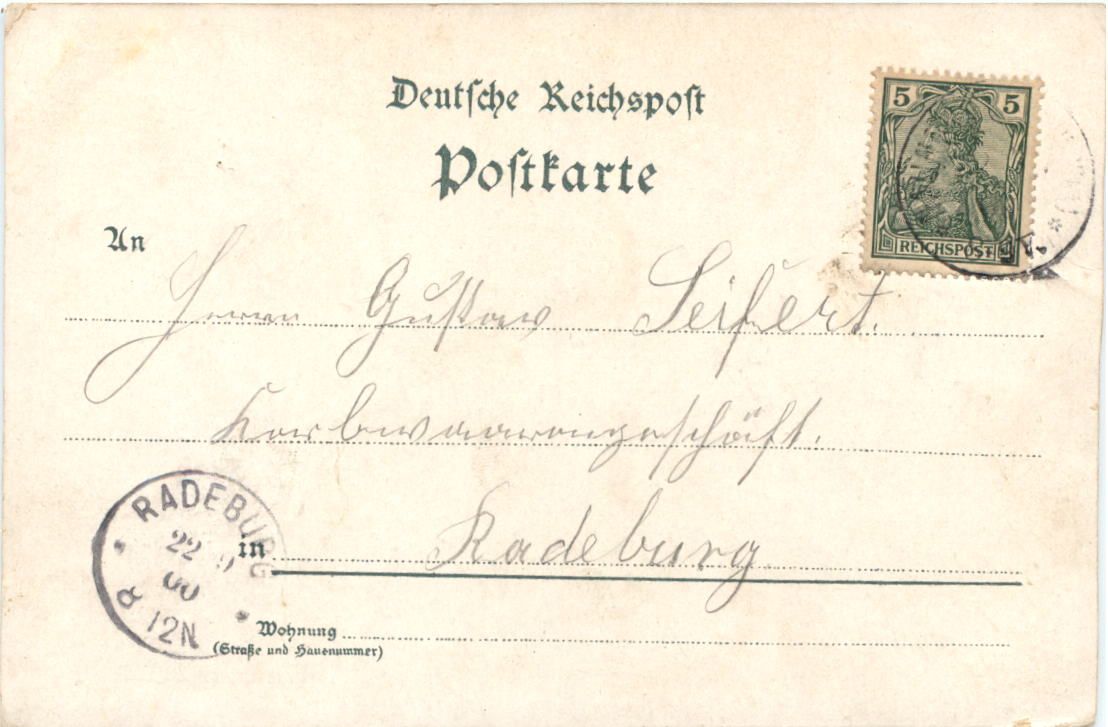 Deutsche Reichspost
Postkarte
5 5
REICHSPOST
An
Herrn Gustav Seifert.
Korbwaarengeschäft.
in Radeburg.
RADEBURG
22 9
00
8 12N
Wohnung
(Straße und Hausnummer)